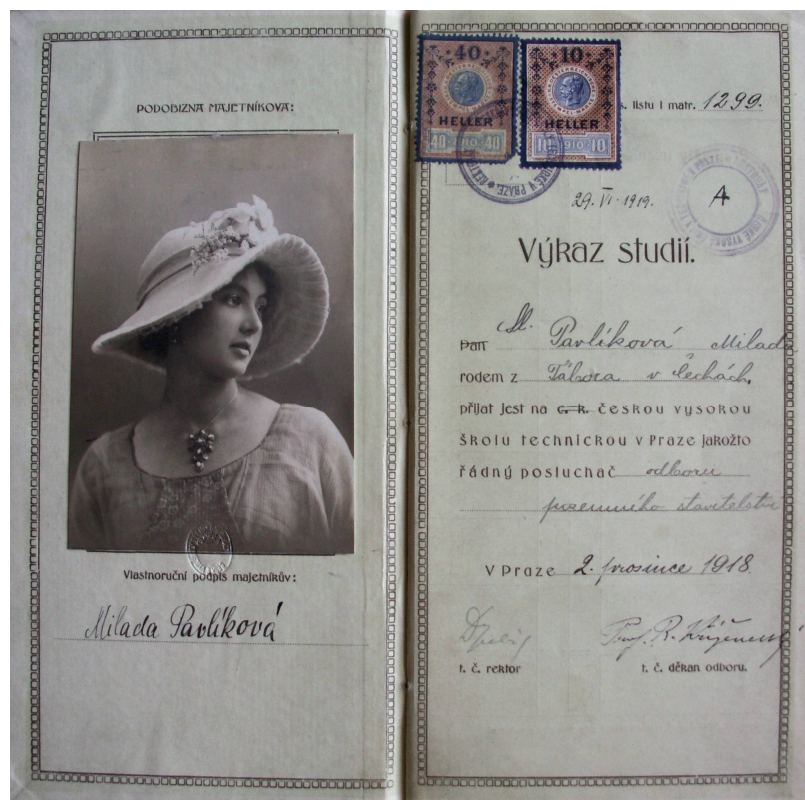 PODOBIZNA MAJETNÍKOVA:
Vlastnoruční podpis majetníkův:
Milada Pavlíková
40
HELLER
40 1910 40
10
HELLER
10 1910 10
s. listu I matr. 1299.
29. VI. 1919.
A
Výkaz studií.
Sl.
Pan Pavlíková Milada
rodem z Tábora v Čechách,
přijat jest na c. k. českou vysokou
školu technickou v Praze jakožto
řádný posluchač odboru
pozemního stavitelství
V Praze 2. prosince 1918.
Prof. R. Kříženecký
t. č. rektor
t. č. děkan odboru.